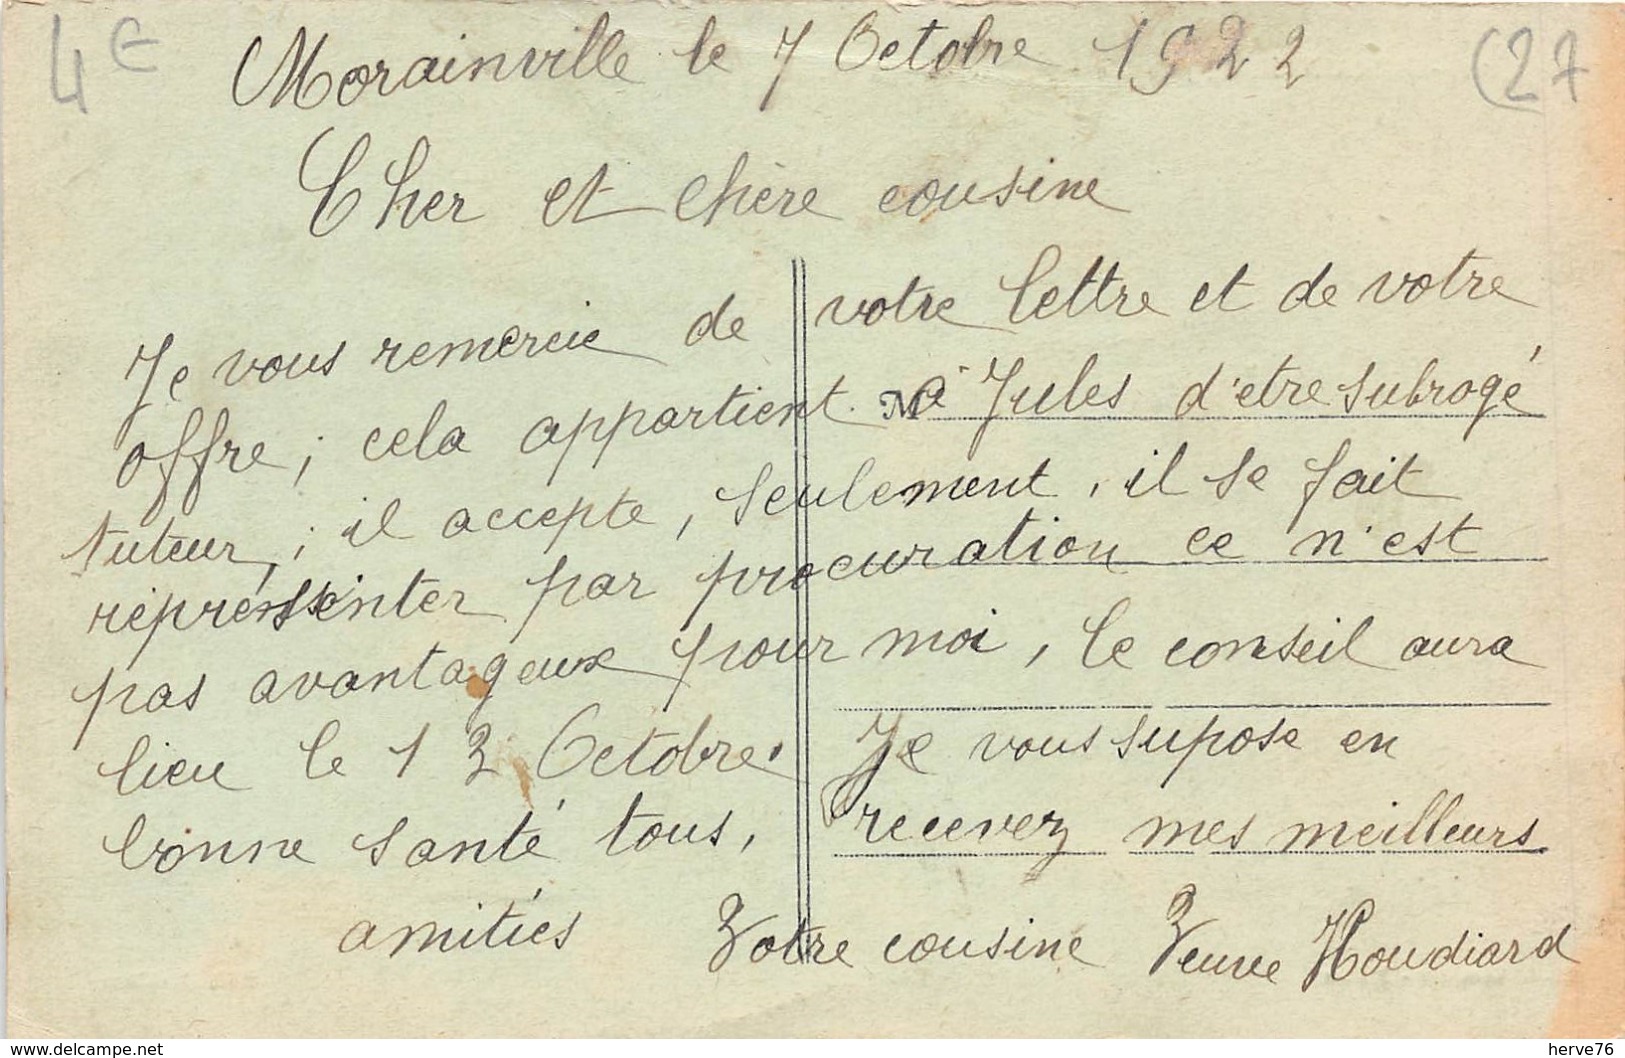 4 €
(27
Morainville le 7 Octobre 1922
Cher et chère cousine
Je vous remercie de votre lettre et de votre
offre ; cela appartient à Jules d'etre subrogé
tuteur, ; il accepte, seulement, il se fait
représenter par procuration ce n'est
pas avantageux pour moi, le conseil aura
lieu le 13 Octobre. Je vous supose en
bonne santé tous, recevez mes meilleurs
amitiés Votre cousine Veuve Houdiard
www.delcampe.net
herve76